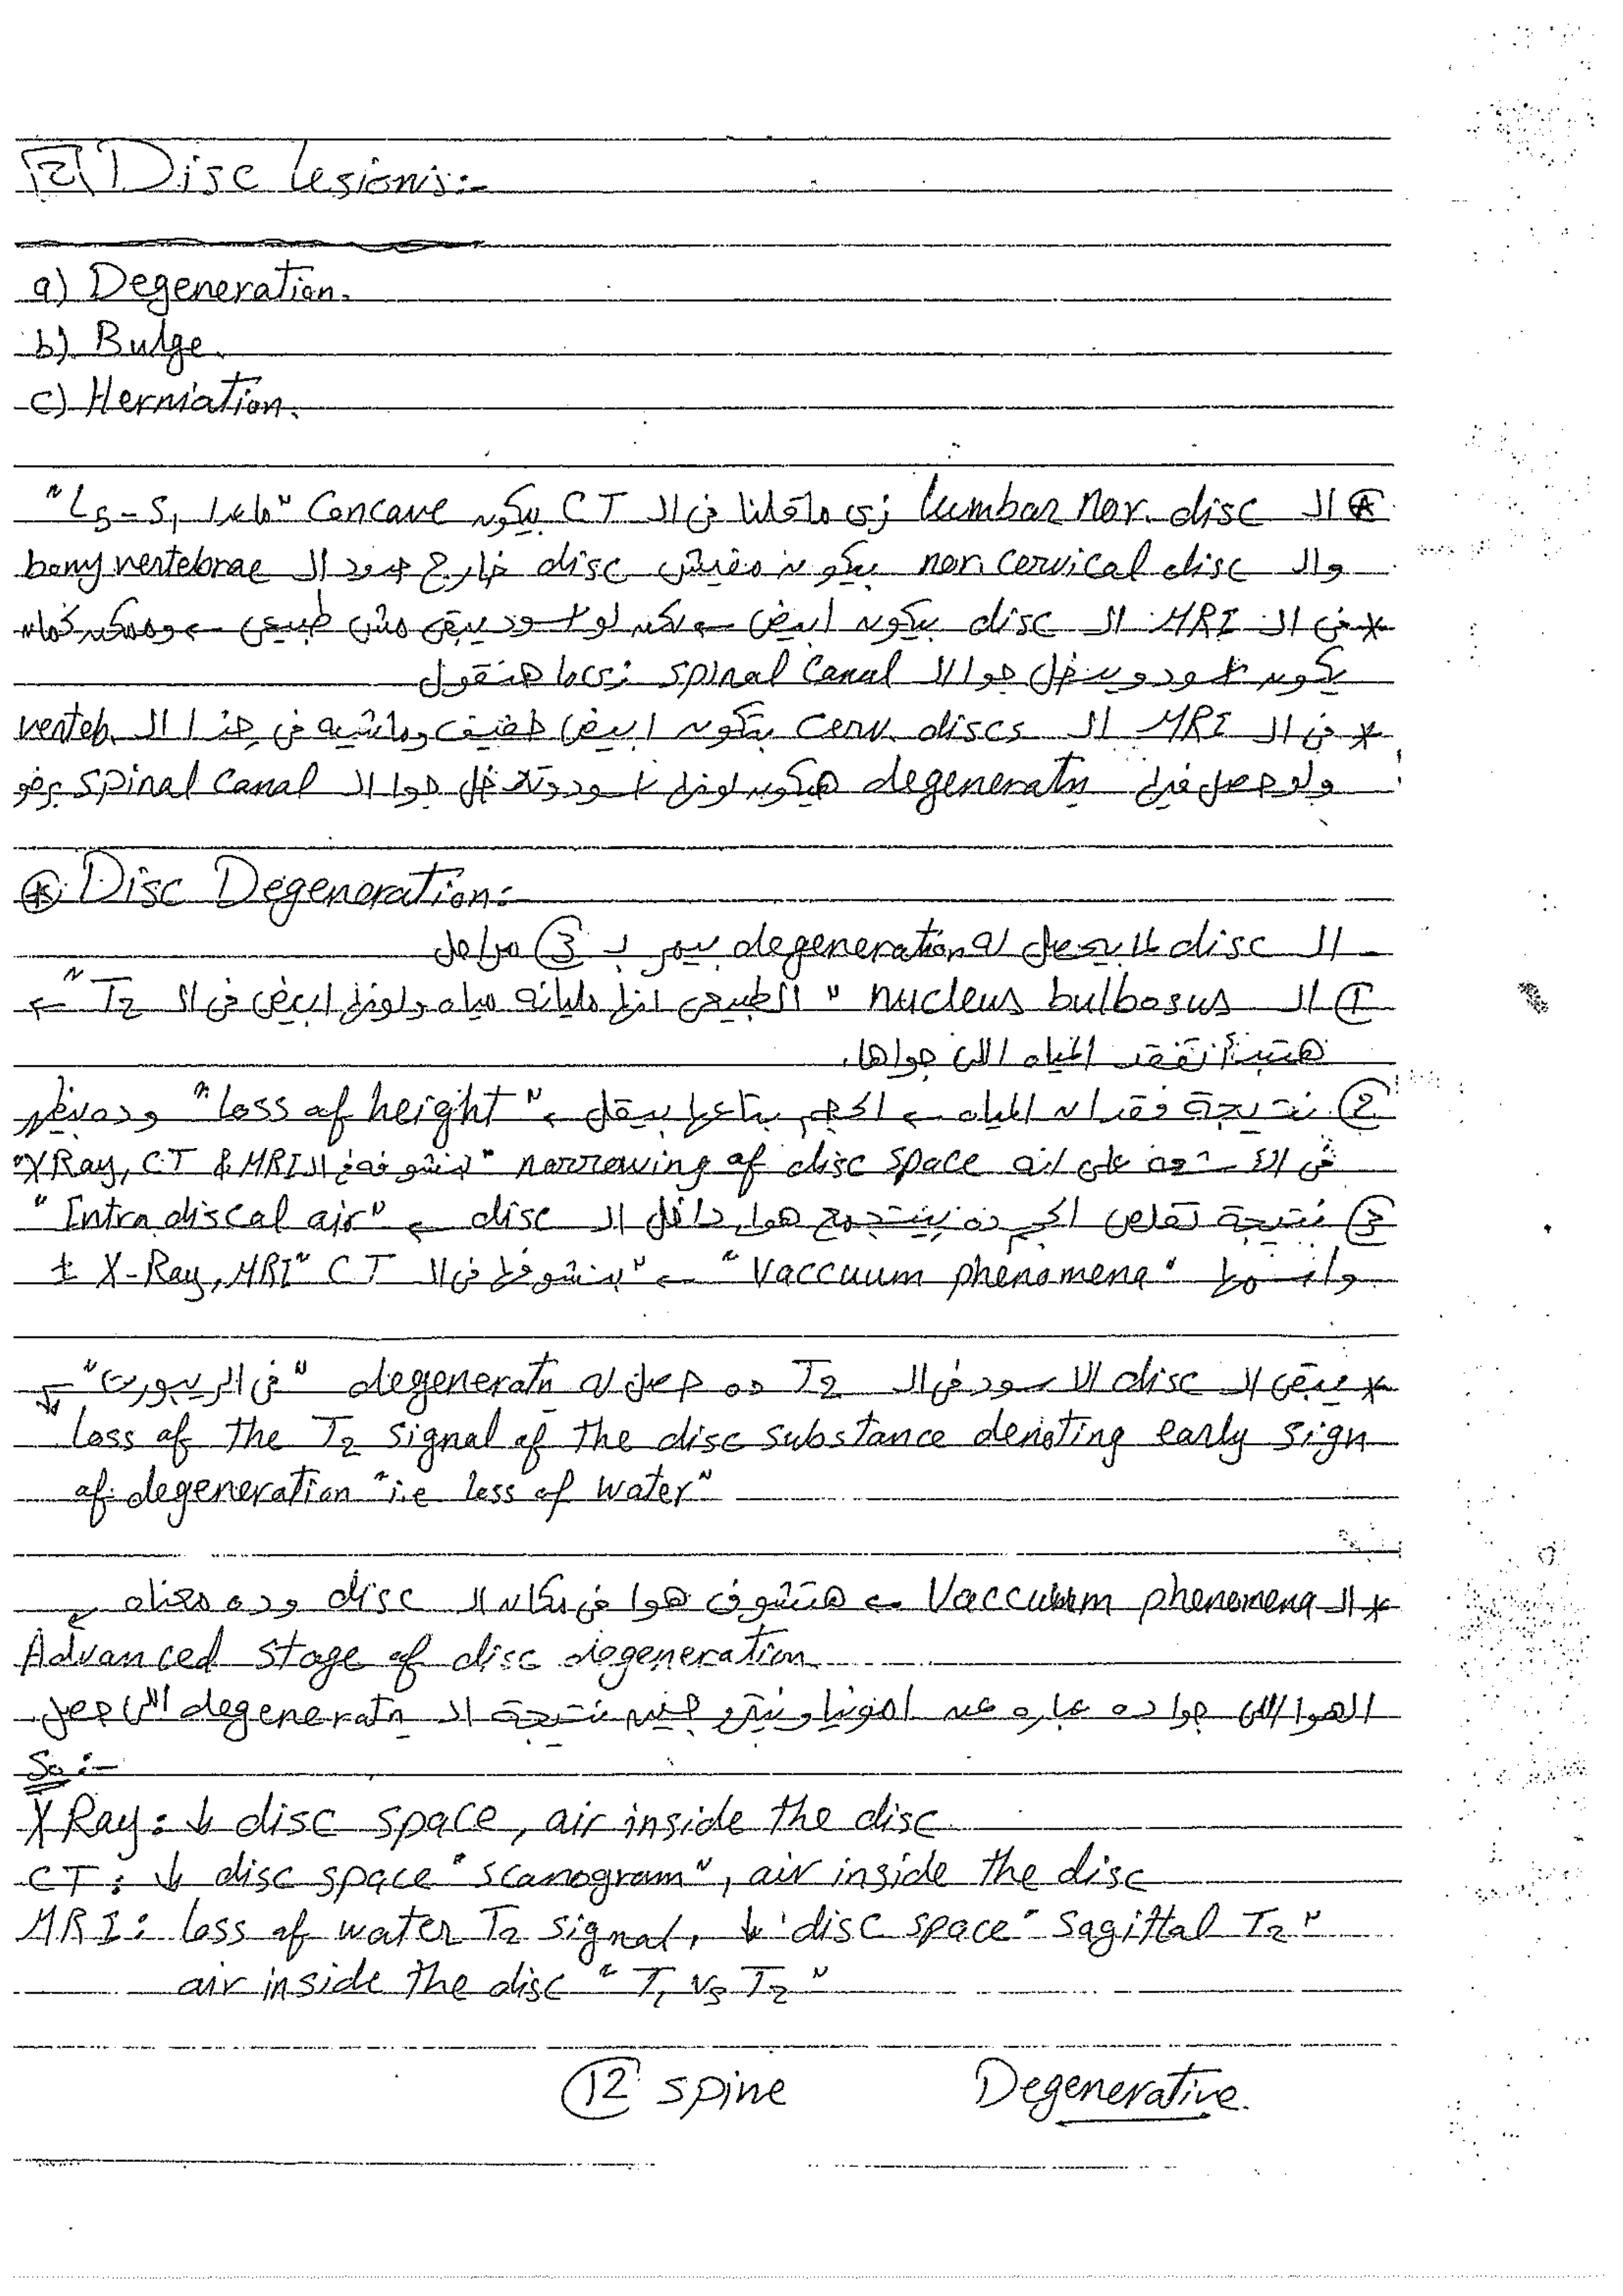 [2] Disc lesions:-
a) Degeneration.
b) Bulge.
c) Herniation.
* ال lumbar nor. disc زى ماقلنا فى ال CT بيكون Concave "ماعدا L5-S1"
وال nor. cervical disc بيكون مفيش disc خارج حدود ال bony vertebrae
* فى ال MRI ال disc بيكون ابيض ← لكن لو اسود يبقى مش طبيعى ← وممكن كمان
يكون اسود ويدخل جوا ال spinal canal زى ما هنقول
* فى ال MRI ال Cerv. discs بتكون ابيض خفيف وماشيه فى حذا ال verteb.
ولو حصل فيها degeneratn هيكون لونها اسود وتدخل جوا ال spinal canal برضو
* Disc Degeneration:
- ال disc لما يحصل له degeneration بيمر ب ③ مراحل
① ال nucleus bulbosus "الطبيعى انها مليانه مياه ولونها ابيض فى ال T2" ←
هتبدأ تفقد المياه اللى جواها.
② نتيجة فقدان المياه ← الحجم بتاعها بيقل ← "loss of height" وده بيظهر
فى الاشعه على انه narrowing of disc space "بنشوفه فى ال XRay, CT & MRI"
③ نتيجة تقلص الحجم ده بيتجمع هوا داخل ال disc ← "Intradiscal air"
واسمها "Vaccuum phenomena" ← "بنشوفها فى ال CT ± X-Ray, MRI"
* يبقى ال disc الاسود فى ال T2 ده حصل له degeneratn "فى الريبورت" ←
loss of the T2 signal of the disc substance denoting early sign
of degeneration "i.e loss of water"
* ال Vaccuum phenomena ← هتشوف هوا فى مكان ال disc وده معناه ←
Advanced stage of disc degeneration
الهوا اللى جوا ده عباره عن امونيا ونيتروجين نتيجة ال degeneratn اللى حصل.
So:-
X Ray: ↓ disc space, air inside the disc
CT: ↓ disc space "scanogram", air inside the disc
MRI: loss of water T2 signal, ↓ disc space "Sagittal T2"
air inside the disc "T1 vs T2"
⑫ spine Degenerative.